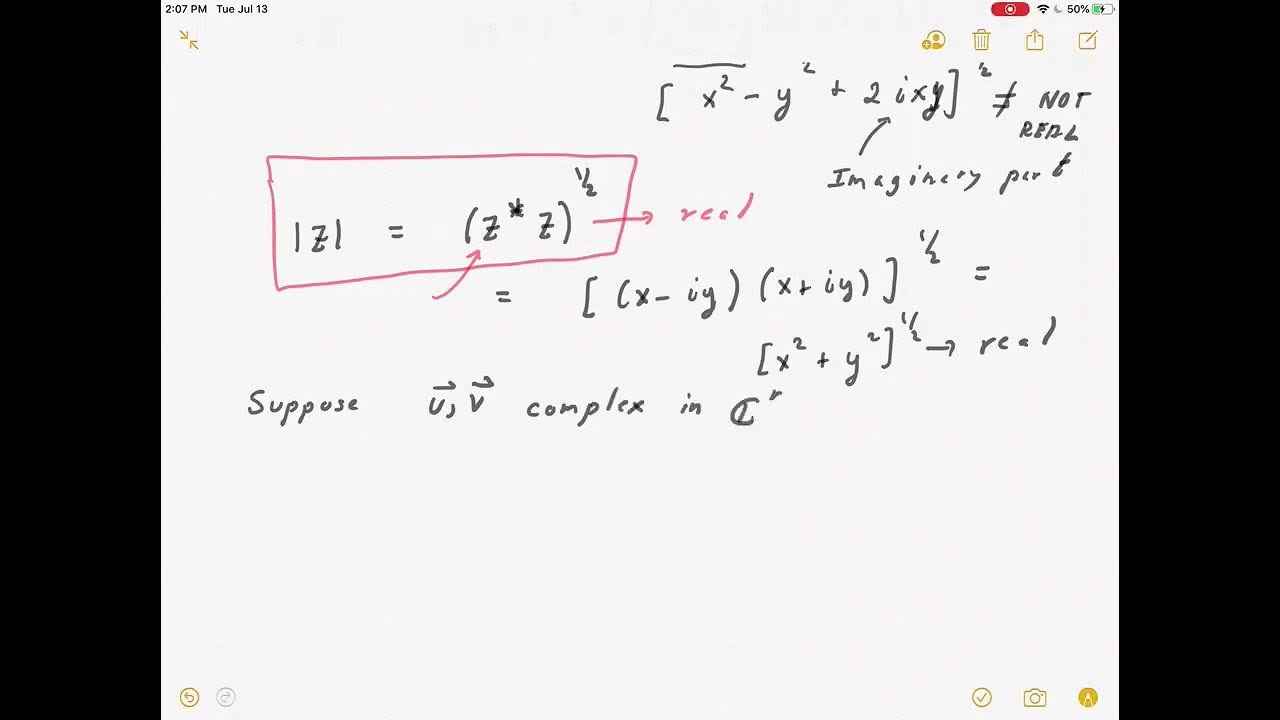 2:07 PM Tue Jul 13
50%
[ x² - y² + 2 i x y ]^½ ≠ NOT
REAL
Imaginary part
|z| = (z* z)^½ → real
= [ (x - iy) (x + iy) ]^½ =
[x² + y²]^½ → real
Suppose u⃗, v⃗ complex in ℂ